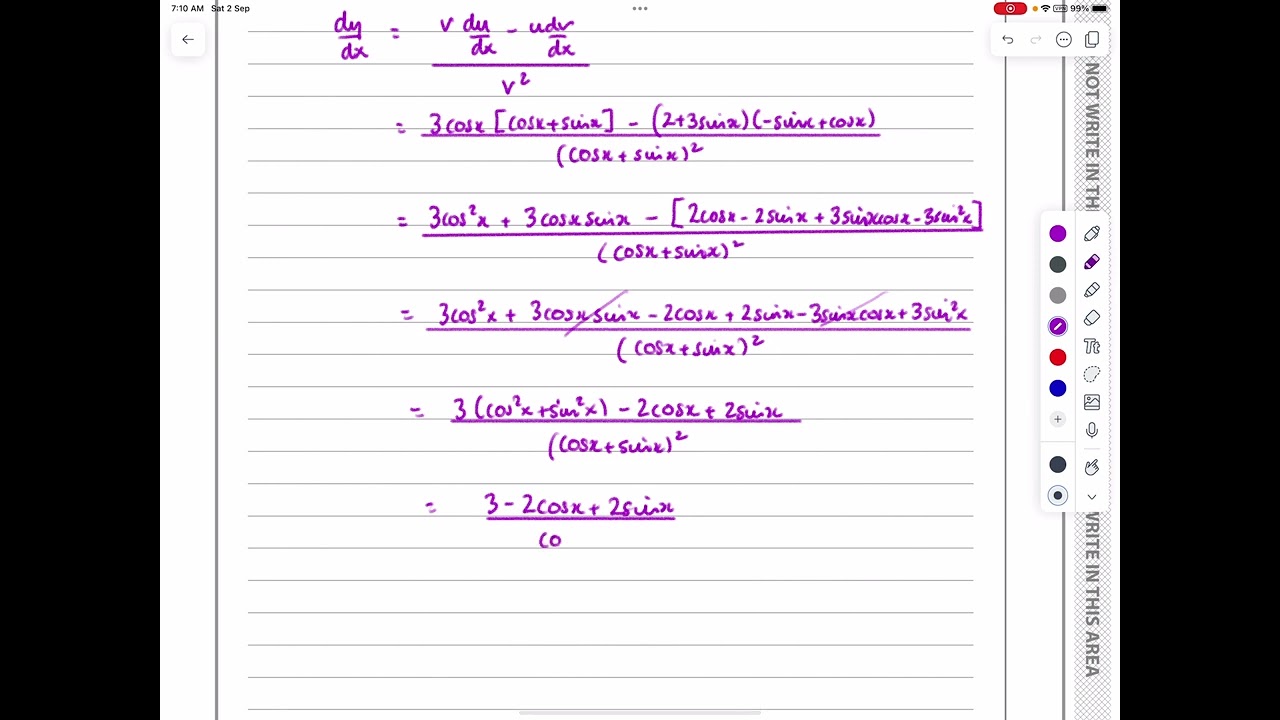 7:10 AM Sat 2 Sep
VPN 99%
dy/dx = (v du/dx - u dv/dx) / v²
= 3cosx [cosx+sinx] - (2+3sinx)(-sinx+cosx) / (cosx + sinx)²
= 3cos²x + 3cosxsinx - [2cosx - 2sinx + 3sinxcosx - 3sin²x] / (cosx+sinx)²
= 3cos²x + 3cosxsinx - 2cosx + 2sinx - 3sinxcosx + 3sin²x / (cosx+sinx)²
= 3(cos²x+sin²x) - 2cosx + 2sinx / (cosx+sinx)²
= 3 - 2cosx + 2sinx / (co
Tt
NOT WRITE IN TH
WRITE IN THIS AREA